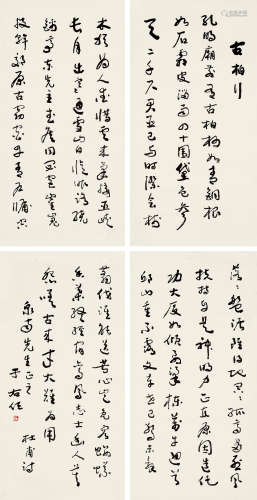 古柏行
孔明廟前有古柏柯如青銅根
如石霜皮溜雨四十圍黛色參
天二千尺君臣已與時際會樹
木猶爲人愛惜雲來氣接巫峽
長月出寒通雪山白憶昨路繞
錦亭東先主武侯同閟宮崔嵬
枝幹郊原古窈窕丹青戶牖空
落落盤踞雖得地冥冥孤高多烈風
扶持自是神明力正直原因造化
功大廈如傾要梁棟萬牛迴首
邱山重不露文章世已驚未辭
翦伐誰能送苦心豈免容螻蟻
香葉終經宿鸞鳳志士幽人莫
怨嗟古來材大難爲用
杜甫詩
先生正之
于右任